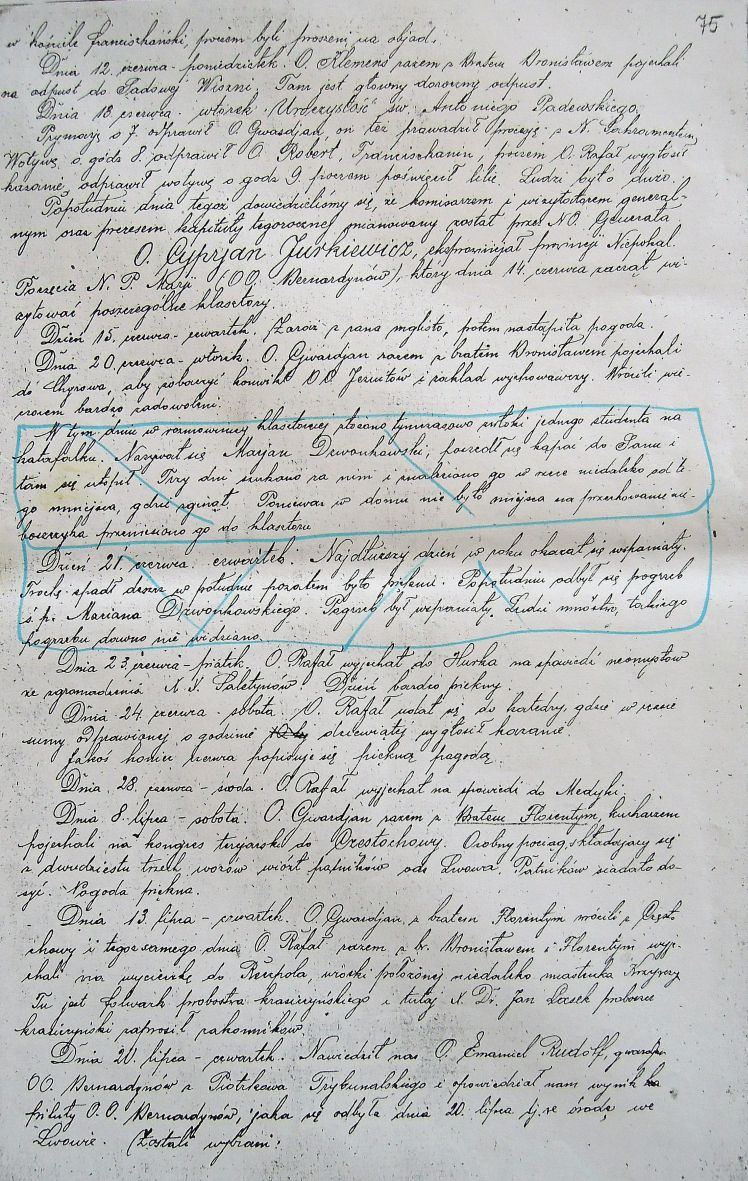 75
w kościele franciszkański, poczem byli proszeni na objad.
Dnia 12. czerwca - poniedziałek. O. Klemens razem z Bratem Bronisławem pojechali
na odpust do Sadowej Wiszni. Tam jest główny doroczny odpust.
Dnia 13. czerwca. wtorek. Uroczystość św. Antoniego Padewskiego.
Prymarję o 7. odprawił O. Gwardjan, on też prowadził procesję z N. Sakramentem,
Wotywę o godz 8. odprawił O. Robert, Franciszkanin, poczem O. Rafał wygłosił
kazanie, odprawił wotywę o godz 9. poczem poświęcił lilie. Ludzi było dużo.
Popołudniu dnia tegoż dowiedzieliśmy się, że komisarzem i wizytatorem general-
nym oraz prezesem kapituły tegorocznej mianowany został przez NO. Generała
O. Cyprjan Jurkiewicz, eksprowincjał prowincji Niepokal.
Poczęcia N. P. Marji (OO. Bernardynów), który dnia 14. czerwca zaczął wi-
zytować poszczególne klasztory.
Dzień 15. czerwca - czwartek. Zaraz z rana mglisto, potem nastąpiła pogoda.
Dnia 20. czerwca - wtorek. O. Gwardjan razem z bratem Bronisławem pojechali
do Chyrowa, aby zobaczyć konwikt OO. Jezuitów i zakład wychowawczy. Wrócili wie-
czorem bardzo zadowolni.
W tym dniu w rozmownicy klasztornej złożono tymczasowo zwłoki jednego studenta na
katafalku. Nazywał się Marjan Dzwonkowski, poszedł się kąpać do Sanu i
tam się utopił. Trzy dni szukano za nim i znaleziono go w rzece niedaleko od te-
go miejsca, gdzie zginął. Ponieważ w domu nie było miejsca na przechowanie nie-
boszczyka przeniesiono go do klasztoru.
Dzień 21. czerwca czwartek. Najdłuższy dzień w roku okazał się wspaniały.
Trochę spadł deszcz w południe pozatem było pięknie. Popołudniu odbył się pogrzeb
ś. p. Mariana Dzwonkowskiego. Pogrzeb był wspaniały. Ludzi mnóstwo, takiego
pogrzebu dawno nie widziano.
Dnia 23. czerwca - piątek. O. Rafał wyjechał do Hurka na spowiedź neomystów
ze zgromadzenia X. X. Saletynów. Dzień bardzo piękny.
Dnia 24. czerwca sobota. O. Rafał udał się do katedry, gdzie w czasie
sumy odprawianej o godzinie dziewiątej wygłosił kazanie.
Jakoś koniec czerwca popisuje się piękną pogodą.
Dnia 28. czerwca - środa. O. Rafał wyjechał na spowiedź do Medyki.
Dnia 8. lipca - sobota. O. Gwardjan razem z Bratem Florentym, kucharzem
pojechali na kongres tercjarski do Częstochowy. Osobny pociąg składający się
z dwudziestu trzech wozów wiózł pątników ode Lwowa. Pątników siadało do-
syć. Pogoda piękna.
Dnia 13. lipca - czwartek. O. Gwardjan z bratem Florentym wrócili z Często-
chowy i tegoż samego dnia O. Rafał razem z br. Bronisławem i Florentym wyje-
chali na wycieczkę do wioski położonej niedaleko miasteczka Krzywczy
Tu jest folwark probostwa krasiczyńskiego i tutaj X. Dr. Jan proboszcz
krasiczyński zaprosił zakonników.
Dnia 20. lipca - czwartek. Nawiedził nas O. Emanuel Rudolf, gwardjan
OO. Bernardynów z Piotrkowa Trybunalskiego i opowiedział nam wynik ka-
pituły O.O. Bernardynów, jaka się odbyła dnia 20. lipca tj. we środę we
Lwowie. Zostali wybrani: